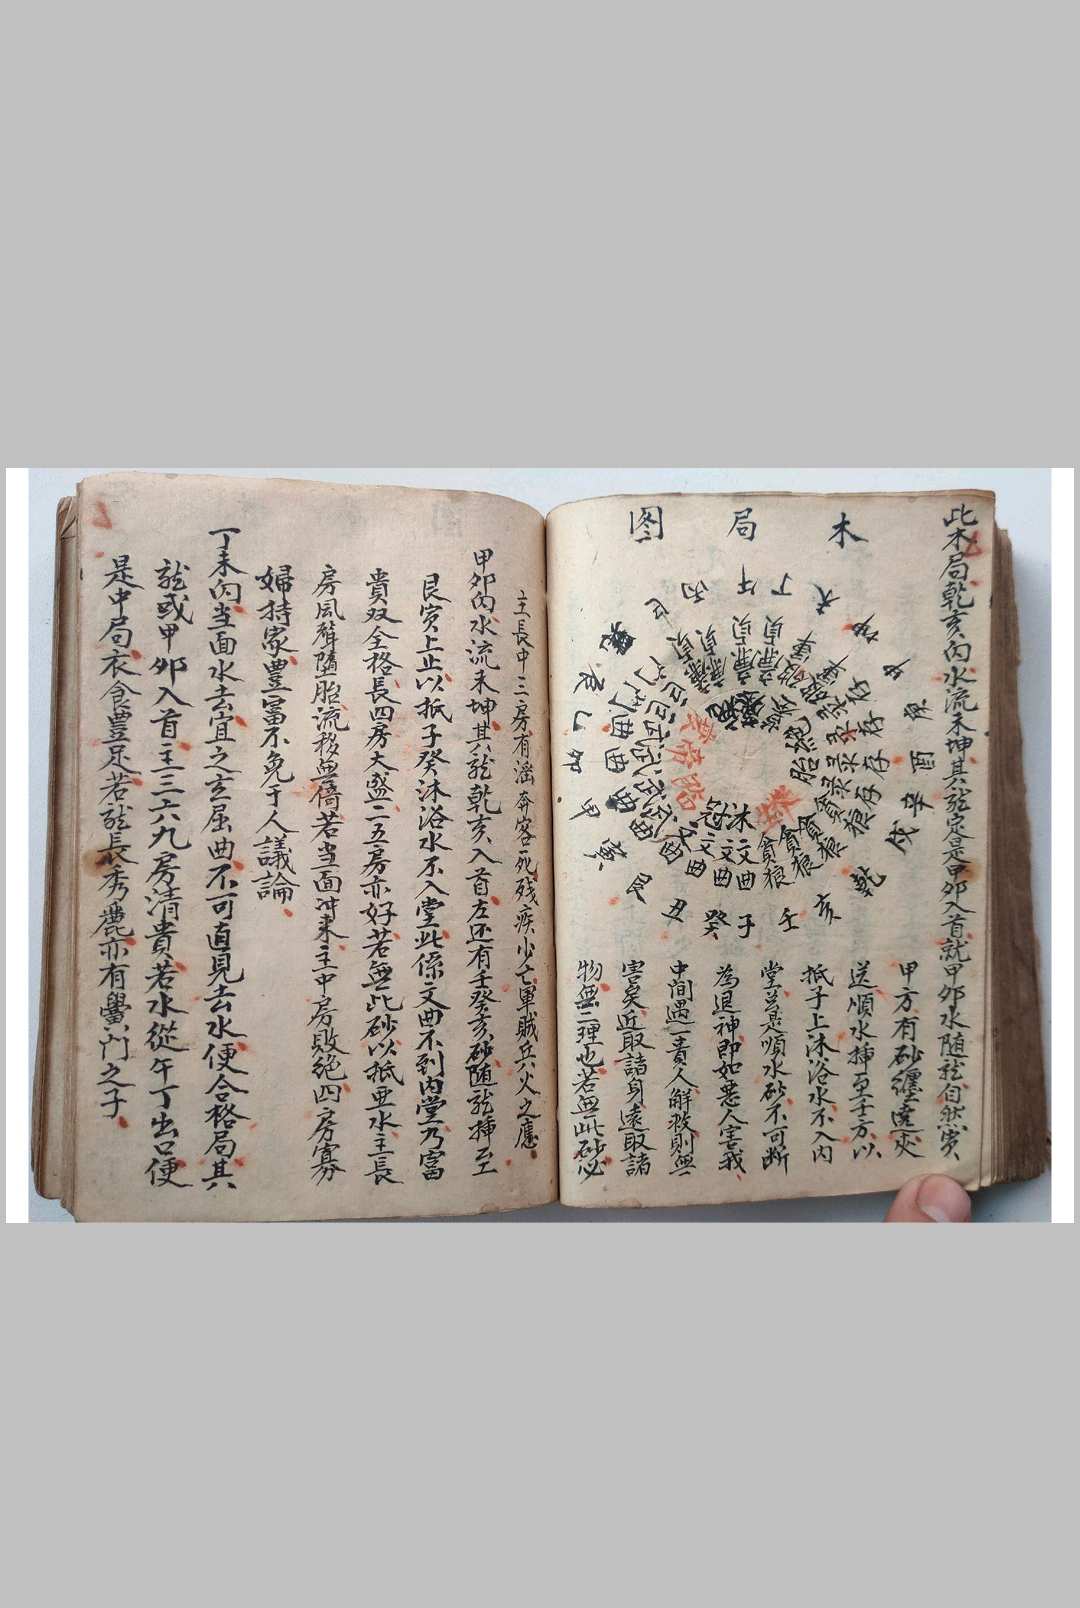 木局图
此木局乾亥向水流未坤其龍定是甲卯入首就甲卯水随龍自然災
甲方有砂纏遶夾
送順水揷至壬方以
抵子上沐浴水不入内
堂豈是順水砂不可断
為退神即如悪人害我
中间遇一責人解救則無
害矣近取諸身遠取諸
物無二理也若無此砂必
丙午丁未坤申庚酉辛戌乾亥壬子癸丑艮寅甲卯乙辰巽巳
廉貞
廉貞
廉貞
破軍
禄存
禄存
禄存
貪狼
貪狼
貪狼
文曲
文曲
文曲
沐
冠
胎
絶
主長中三房有滛奔客死残疾少亡軍賊兵火之應
甲卯向水流未坤其龍乾亥入首左还有壬癸亥砂随龍揷至
艮寅上止以抵子癸沐浴水不入堂此係文曲不到内堂乃富
貴双全格長四房大盛二五房亦好若無此砂以抵亜水主長
房風聲墮胎流移無倚若当面冲来主中房敗絶四房寡
婦持家豊冨不免于人議論
丁未向当面水去宜之玄屈曲不可直見去水便合格局其
龍或甲卯入首主三六九房清貴若水從午丁出口便
是中局衣食豊足若龍長秀麗亦有黌门之子